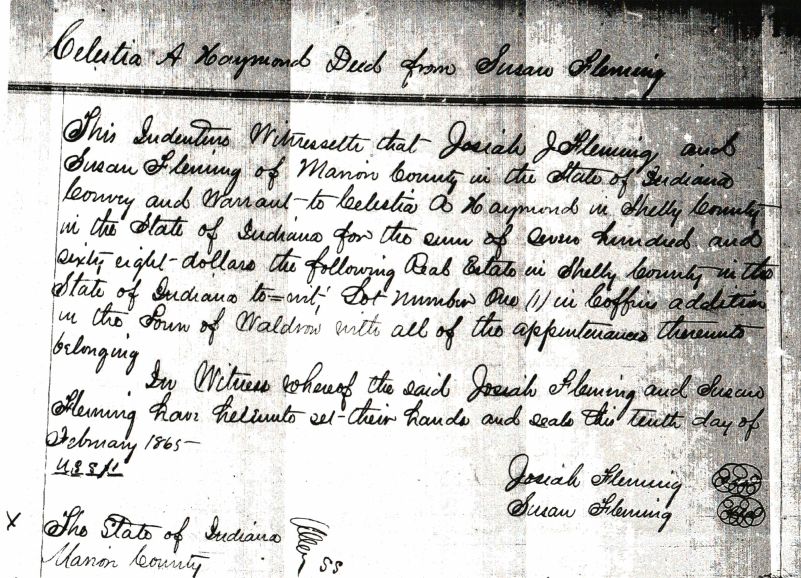 Celestia A Haymond Deed from Susan Fleming
This Indenture Witnesseth that Josiah J Fleming and
Susan Fleming of Marion County in the State of Indiana
Convey and Warrant to Celestia A Haymond in Shelly County
in the State of Indiana for the sum of seven hundred and
sixty eight dollars the following Real Estate in Shelly County in the
State of Indiana to=wit; Lot Number One (1) in Coffins addition
in the Town of Waldron with all of the appurtenances thereunto
belonging
In Witness whereof the said Josiah Fleming and Susan
Fleming have hereunto set their hands and seals this tenth day of
February 1865
Josiah Fleming
Susan Fleming
X
The State of Indiana
Marion County SS